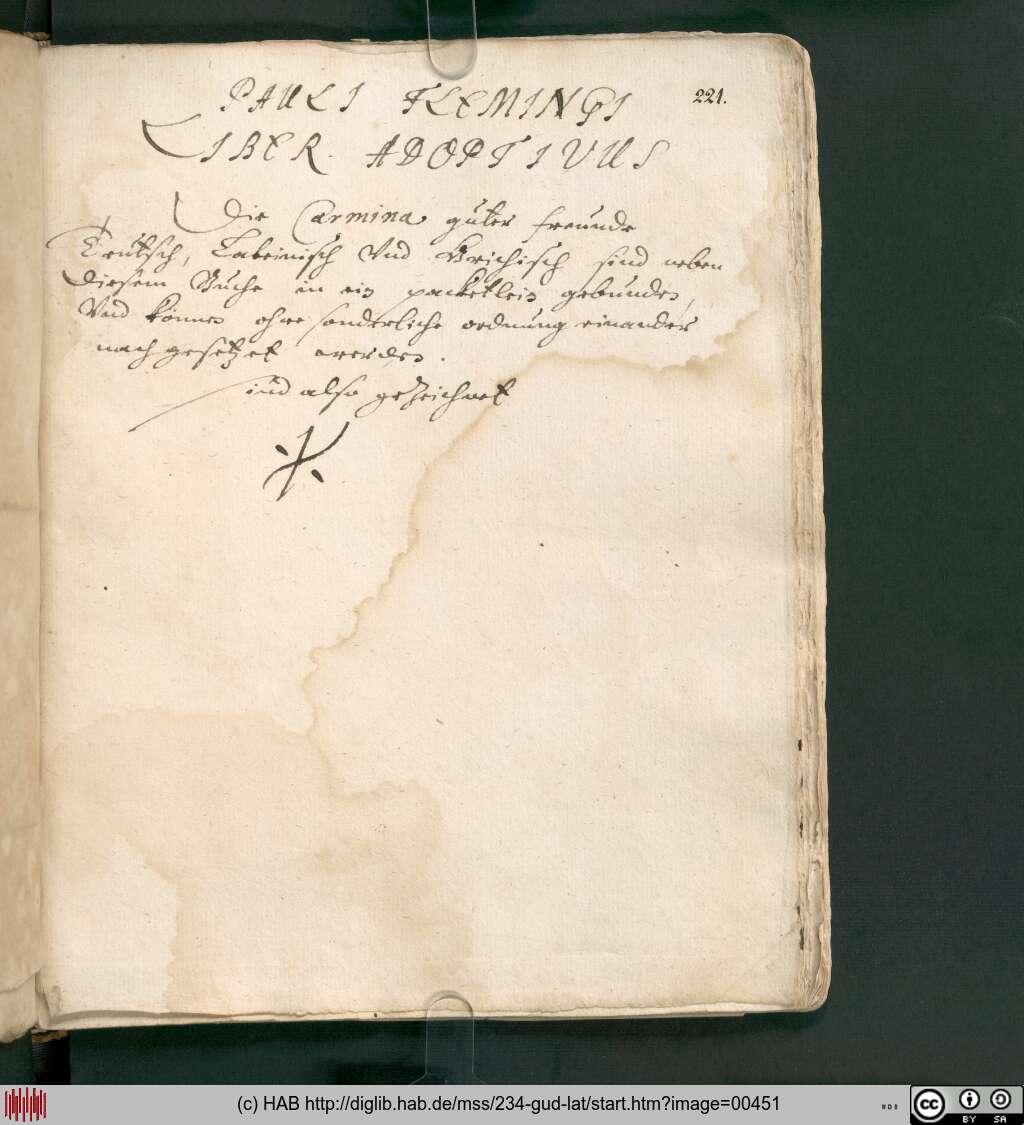 PAULI FLEMINGI
221.
LIBER ADOPTIVUS
Die Carmina guter freunde
Teutsch, Lateinisch Vnd Grichisch sind neben
diesem Buche in ein packetlein gebunden,
Vnd können ohne sonderliche ordnung einander
nach gesetzet werden.
sind also gezeichnet
(c) HAB http://diglib.hab.de/mss/234-gud-lat/start.htm?image=00451
cc
BY SA